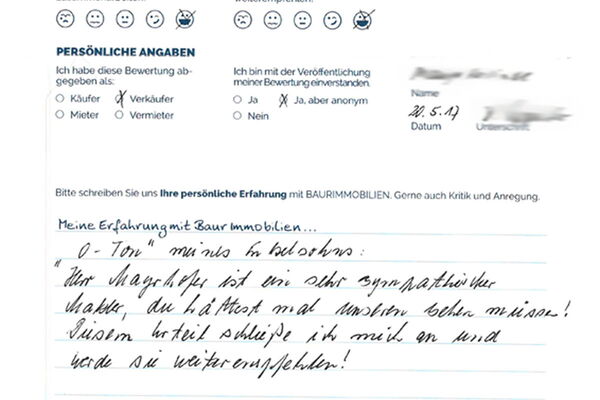 PERSÖNLICHE ANGABEN
Ich habe diese Bewertung ab-
gegeben als:
Käufer Verkäufer
Mieter Vermieter
Ich bin mit der Veröffentlichung
meiner Bewertung einverstanden.
Ja Ja, aber anonym
Nein
Name
20.5.17
Datum Unterschrift
Bitte schreiben Sie uns Ihre persönliche Erfahrung mit BAURIMMOBILIEN. Gerne auch Kritik und Anregung.
Meine Erfahrung mit Baur Immobilien...
O-Ton" meines Enkelsohns:
"Herr Mayrhofer ist ein sehr sympathischer
Makler, du hättest mal unseren sehen müssen!
Diesem Urteil schließe ich mich an und
werde sie weiterempfehlen!